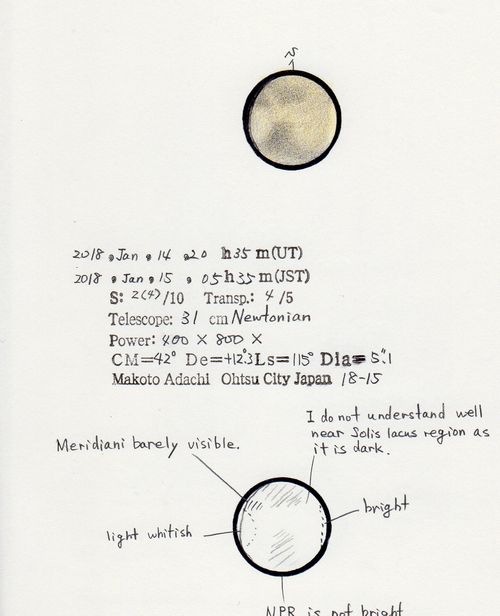 N
2018, Jan, 14, 20 h35 m(UT)
2018, Jan, 15, 05h35m(JST)
S: 2(4)/10 Transp.: 4/5
Telescope: 31 cm Newtonian
Power: 400 × 800 ×
CM=42° De=+12.°3Ls=115° Dia=5.″1
Makoto Adachi Ohtsu City Japan 18-15
I do not understand well
near Solis lacus region as
it is dark.
Meridiani barely visible.
bright
light whitish
NPR is not bright